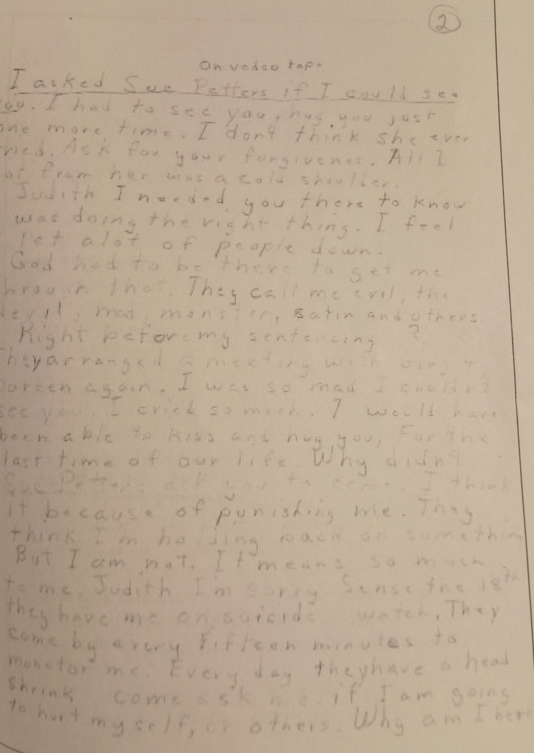 2
On vedeo tape
I asked Sue Petters if I could see
you. I had to see you, hug you just
one more time. I don't think she ever
tried. Ask for your forgivenes. All I
got from her was a cold shoulder.
Judith I needed you there to know
was doing the right thing. I feel
let alot of people down.
God had to be there to get me
through that. They call me evil, the
devil, mad, monster, satin and others.
Right before my sentencing ?
They arranged a meeting with
again. I was so mad I couldn't
see you. I cried so much. I would have
been able to kiss and hug you, For the
last time of our life. Why didn't
Sue Petters ask you to come. I think
it because of punishing me. They
think I'm holding back on something
But I am not. It means so much
to me, Judith I'm sorry. Sense the 18th
they have me on suicide watch, They
come by every fifteen minutes to
monetor me. Every day they have a head
shrink come ask me if I am going
to hurt myself, or others. Why am I here